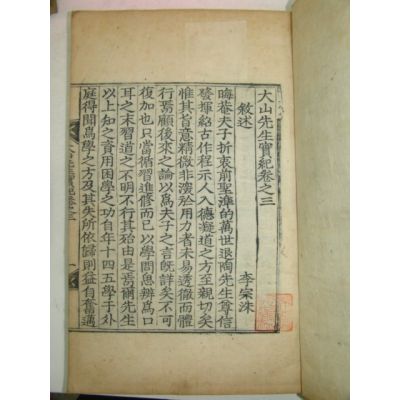 大山先生實紀卷之三
敘述
李宗洙
晦菴夫子折衷前聖凖的萬世退陶先生尊信
發揮紹古作程示人入德凝道之方至親切矣
惟其旨意精微非演於用力者未易透徹而體
行焉顧後來之論以爲夫子之言旣詳矣不可
復加也只當循習進修而已以學問思辨爲口
耳之末習道之不明不行其殆由是焉爾先生
以上知之資用困學之功自年十四五學于外
庭得聞爲學之方及其失所依歸則益自奮邁